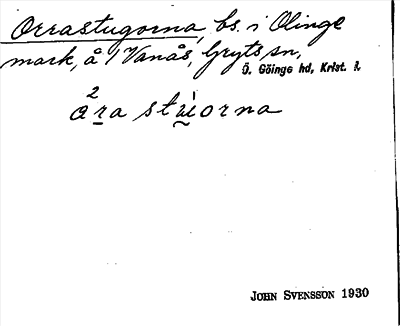 Orrastugorna, bs. i Olinge
mark, å 1/ Vanås, Gryts sn,
Ö. Göinge hd, Krist. l.
2
ara stuiorna
JOHN SVENSSON 1930